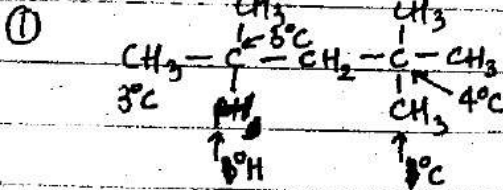 ①
CH₃ CH₃
CH₃ — C — CH₂ — C — CH₃
5°C
3°C H CH₃ 4°C
°H °C